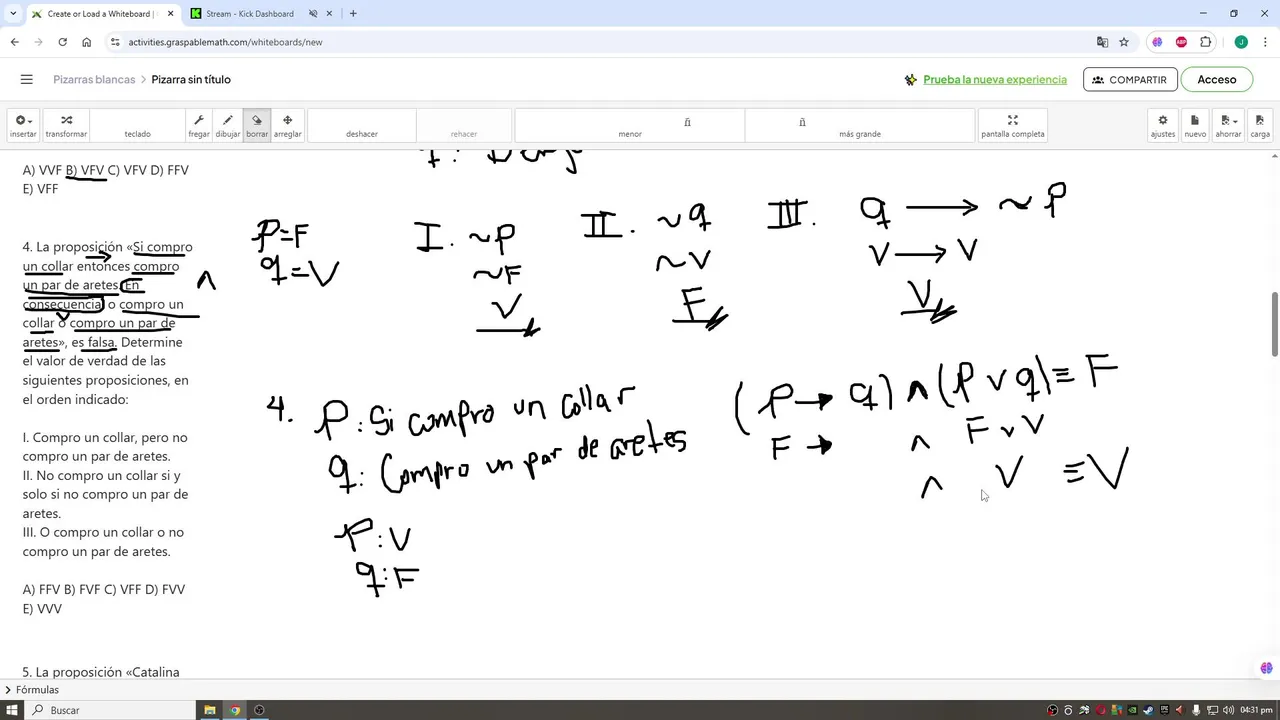 Create or Load a Whiteboard |
Stream - Kick Dashboard
activities.graspablemath.com/whiteboards/new
Pizarras blancas > Pizarra sin título
Prueba la nueva experiencia
COMPARTIR
Acceso
insertar transformar teclado fregar dibujar borrar arreglar deshacer rehacer menor más grande pantalla completa ajustes nuevo ahorrar carga
A) VVF B) VFV C) VFV D) FFV
E) VFF
q:
P=F
q=V
I. ~P
~F
V
II. ~q
~V
F
III. q → ~P
V → V
V
4. La proposición «Si compro
un collar entonces compro
un par de aretes. En
consecuencia o compro un
collar o compro un par de
aretes», es falsa. Determine
el valor de verdad de las
siguientes proposiciones, en
el orden indicado:
→
∧
∨
I. Compro un collar, pero no
compro un par de aretes.
II. No compro un collar si y
solo si no compro un par de
aretes.
III. O compro un collar o no
compro un par de aretes.
A) FFV B) FVF C) VFF D) FVV
E) VVV
4. P: Si compro un collar
q: Compro un par de aretes
P: V
q: F
(P → q) ∧ (P ∨ q) ≡ F
F → ∧ F ∨ V
∧ V ≡ V
5. La proposición «Catalina
Fórmulas
Buscar
04:31 pm